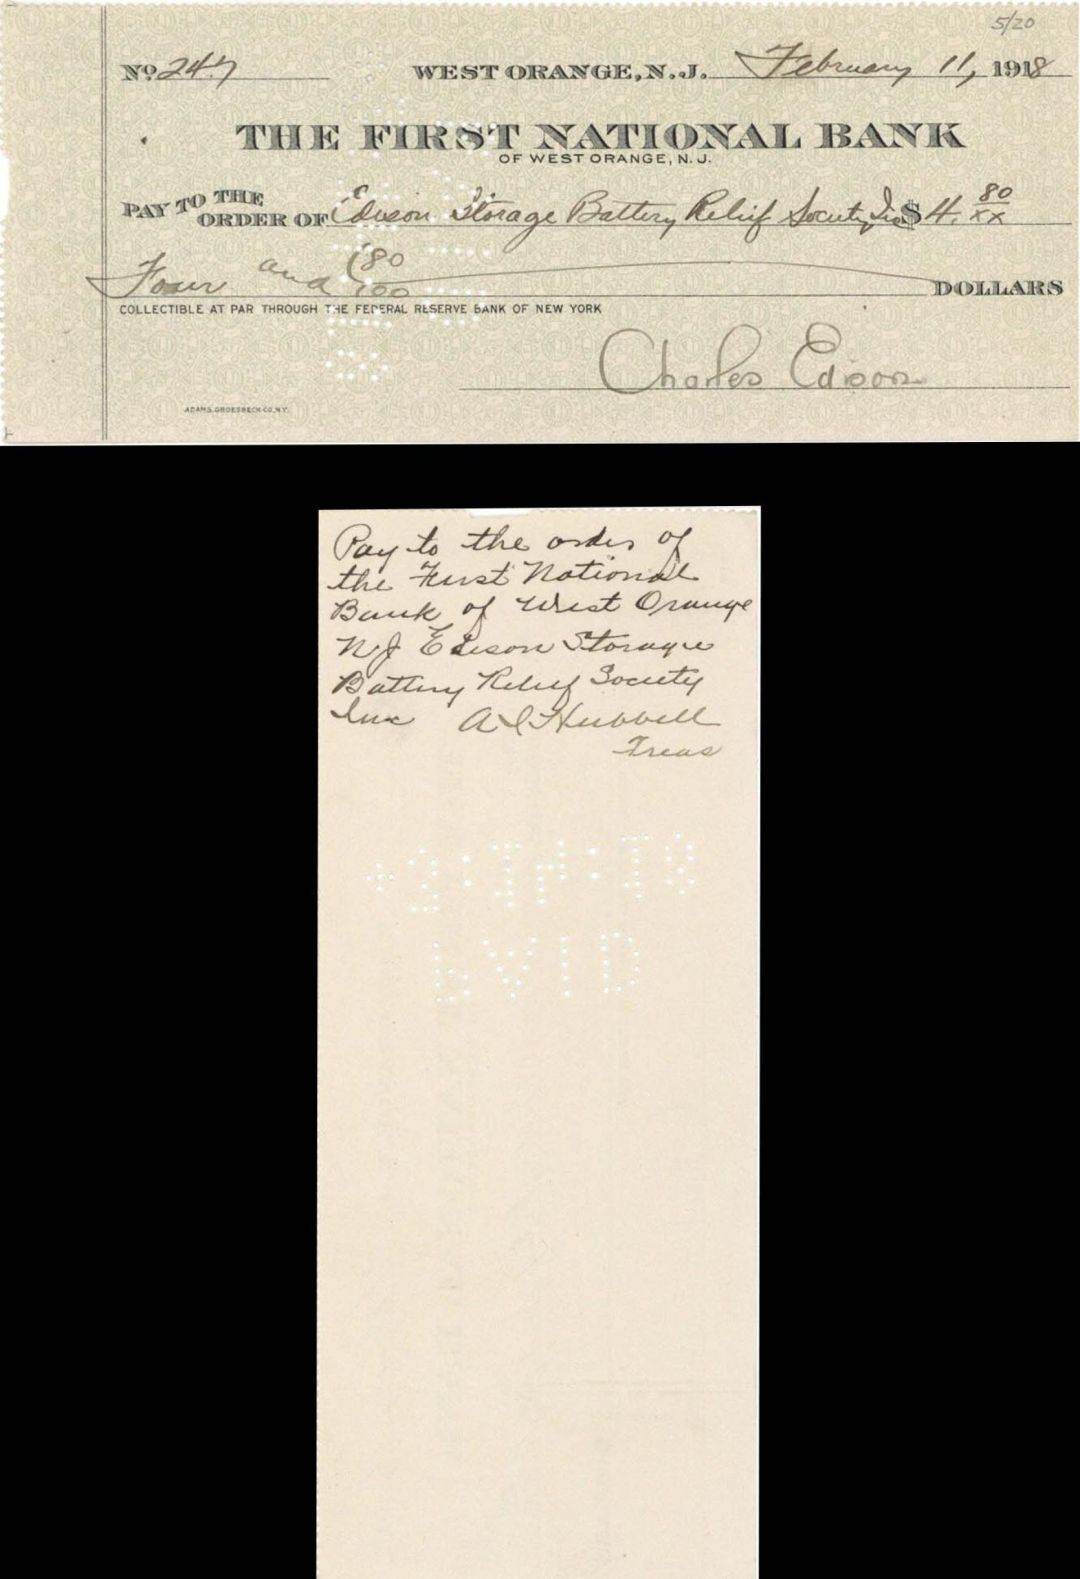 5/20
No 247 WEST ORANGE, N.J. February 11, 1918
THE FIRST NATIONAL BANK
OF WEST ORANGE, N.J.
PAY TO THE ORDER OF Edison Storage Battery Relief Society Inc $ 4. 80/xx
Four and 80/100 DOLLARS
COLLECTIBLE AT PAR THROUGH THE FEDERAL RESERVE BANK OF NEW YORK
Charles Edison
ADAMS, GROESBECK CO. N.Y.
Pay to the order of
the First National
Bank of West Orange
NJ Edison Storage
Battery Relief Society
Inc A I Hubbell
Treas
PAID